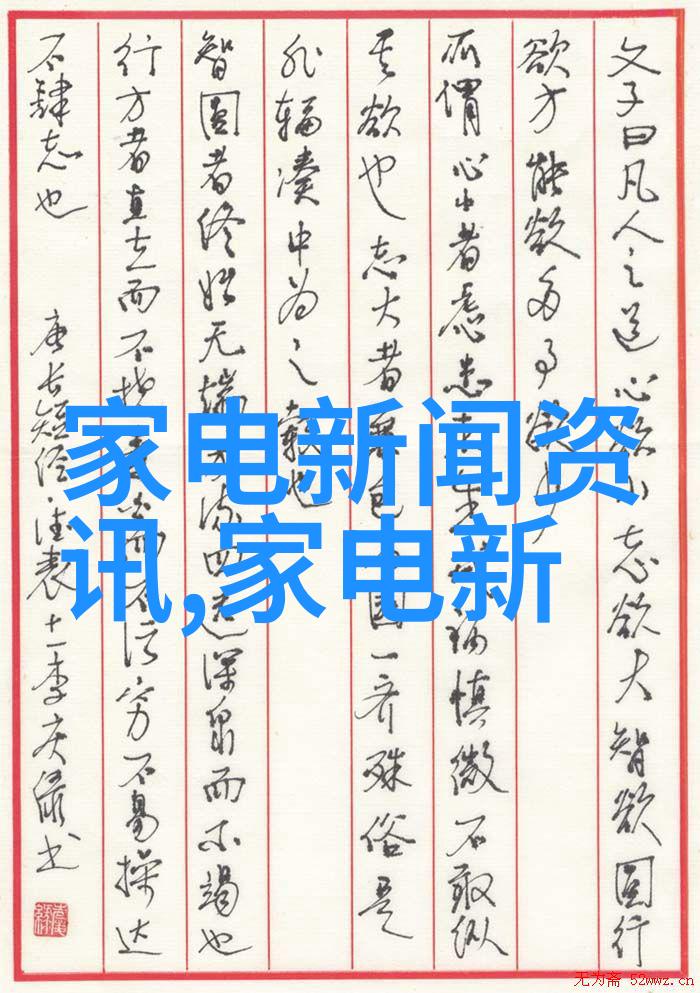 文子曰凡人之道心欲小志欲大智欲圆行
欲方能欲多事欲少
所谓心小者虑患未生 祸慎微不敢纵
其欲也志大者兼包 国一齐殊俗是
非辐凑中为之毂也
智圆者终始无端 流四远深泉而不竭也
行方者直立而不 而不污穷不易操达
不肆志也
唐长短经 十一季 书
家电新闻资
讯,家电新
无为斋 52wwz.cn